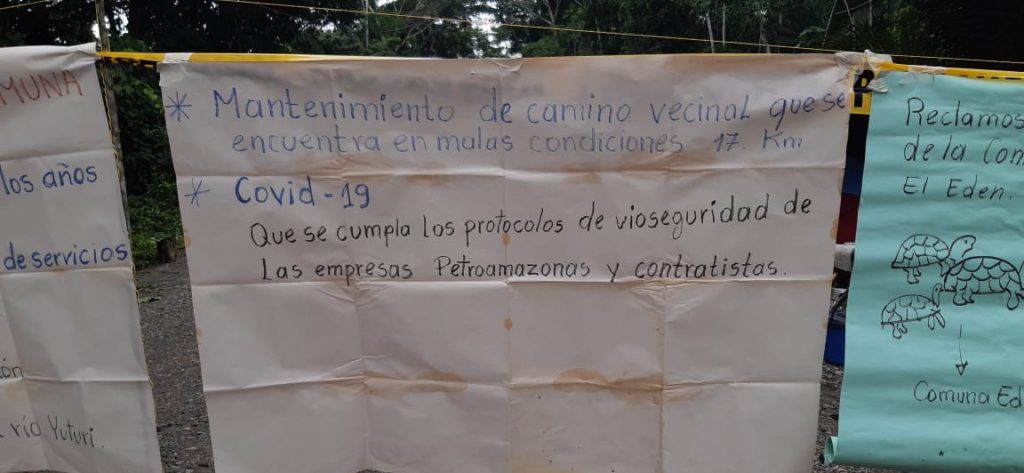 MUNA
los años
de servicios
río Yuturi.
* Mantenimiento de camino vecinal que se
encuentra en malas condiciones 17. Km
* Covid-19
Que se cumpla los protocolos de vioseguridad de
Las empresas Petroamazonas y contratistas.
Reclamos
de la Con
El Eden.
Comuna Ed